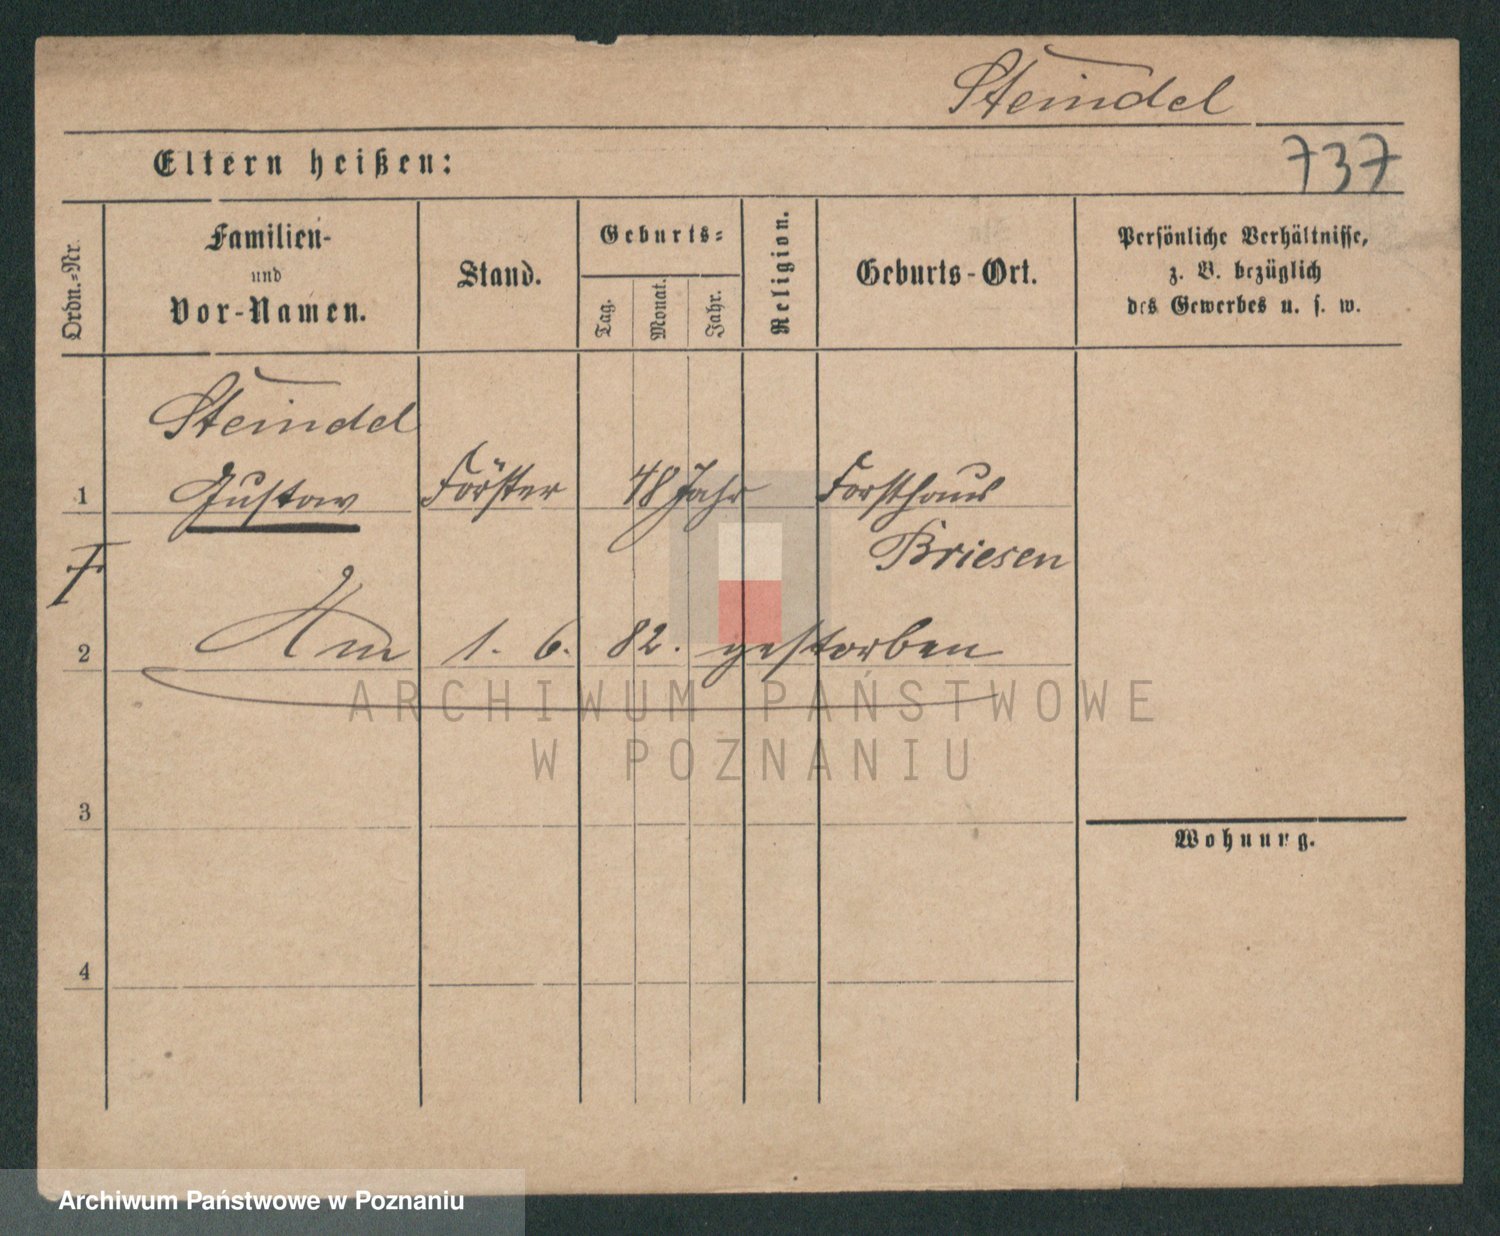 Steindel
Eltern heißen:
737
Ordn.-Nr.
Familien-
und
Vor-Namen.
Stand.
Geburts-
Tag.
Monat.
Jahr.
Religion.
Geburts-Ort.
Persönliche Verhältnisse,
z. B. bezüglich
des Gewerbes u. s. w.
Steindel
1 Gustav Förster 48 Jahr Forsthaus
Briesen
2 Am 1. 6. 82. gestorben
ARCHIWUM PAŃSTWOWE
W POZNANIU
3
Wohnung.
4
Archiwum Państwowe w Poznaniu